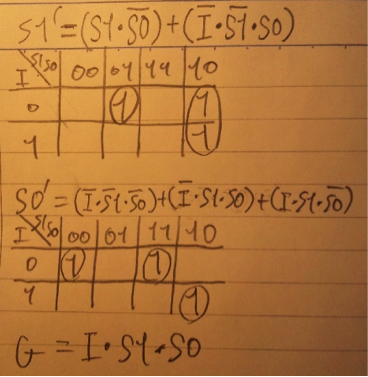 S1' = (S1·S̅0̅) + (I̅·S̅1̅·S0)
I\S1S0 00 01 11 10
0 1 1
1 1
S0' = (I̅·S̅1̅·S̅0̅)+(I̅·S1·S0)+(I·S1·S̅0̅)
I\S1S0 00 01 11 10
0 1 1
1 1
G = I·S1·S0